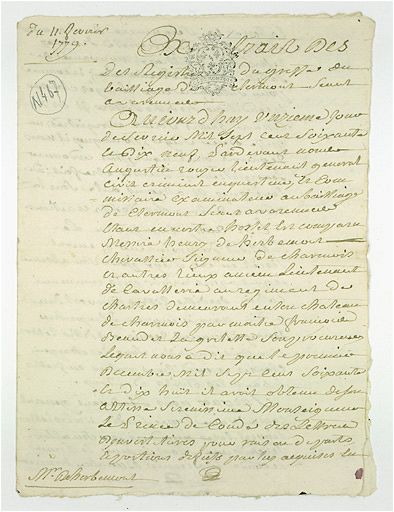 Du 11 fevrier
1779.
Extrait Des
Des Registres du greffe du
bailliage de Clermont
N467
Aujourd'huy onzieme jour
de fevrier Mil Sept cent soixante
et dix neuf Pardevant nous
Augustin lieutenant general
civil criminel et Com
missaire examinateur au bailliage
de Clermont
Etant en notre hostel Est comparu
Messire henry de herbemont
chevallier Seigneur de Charmois
et autres lieux ancien lieutenant
de Cavallerie au regiment de
Chartres demeurant en son chateau
de charmois par maitre françois
son procureur
Lequel nous a dit que le premier
Decembre Mil Sept Cent Soixante
Et dix huit il avoit obtenu de son
altesse Serenissime Monseigneur
Le Prince de Condé des Lettres
pour raison de parts
et portions de fiefs par luy acquises
Mr. De herbemont